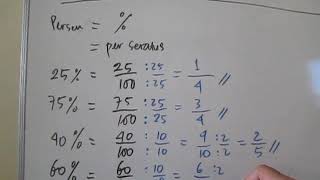 Persen = %
= per seratus
25% = 25/100 :25/:25 = 1/4 //
75% = 75/100 :25/:25 = 3/4 //
40% = 40/100 :10/:10 = 4/10 :2/:2 = 2/5 //
60% = 60 :10 = 6 :2